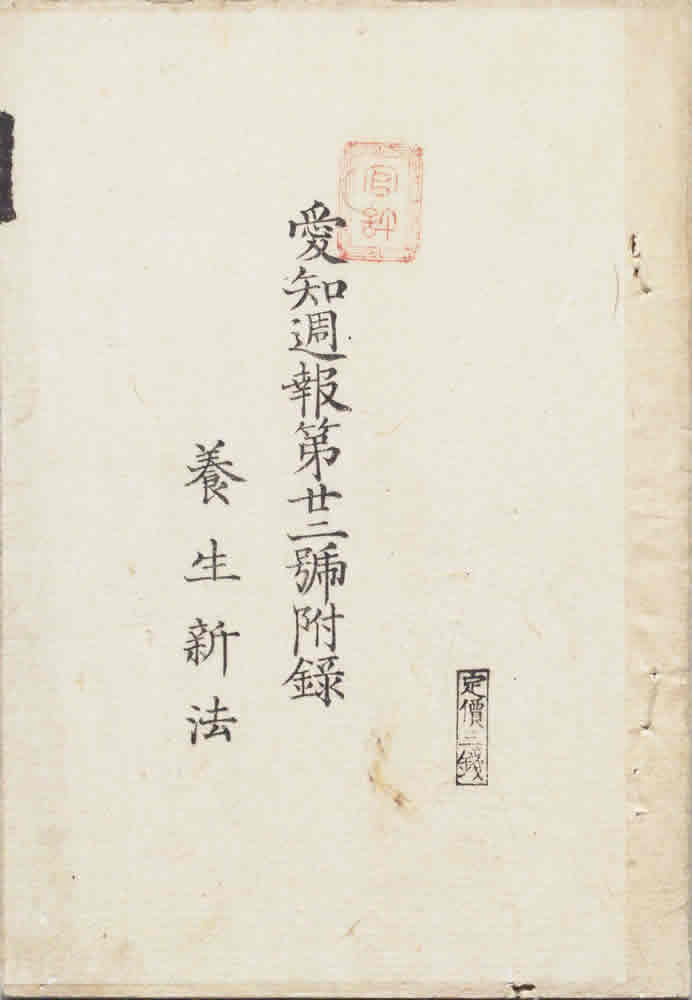 官許
定價三錢
愛知週報第廿二號附錄
養生新法